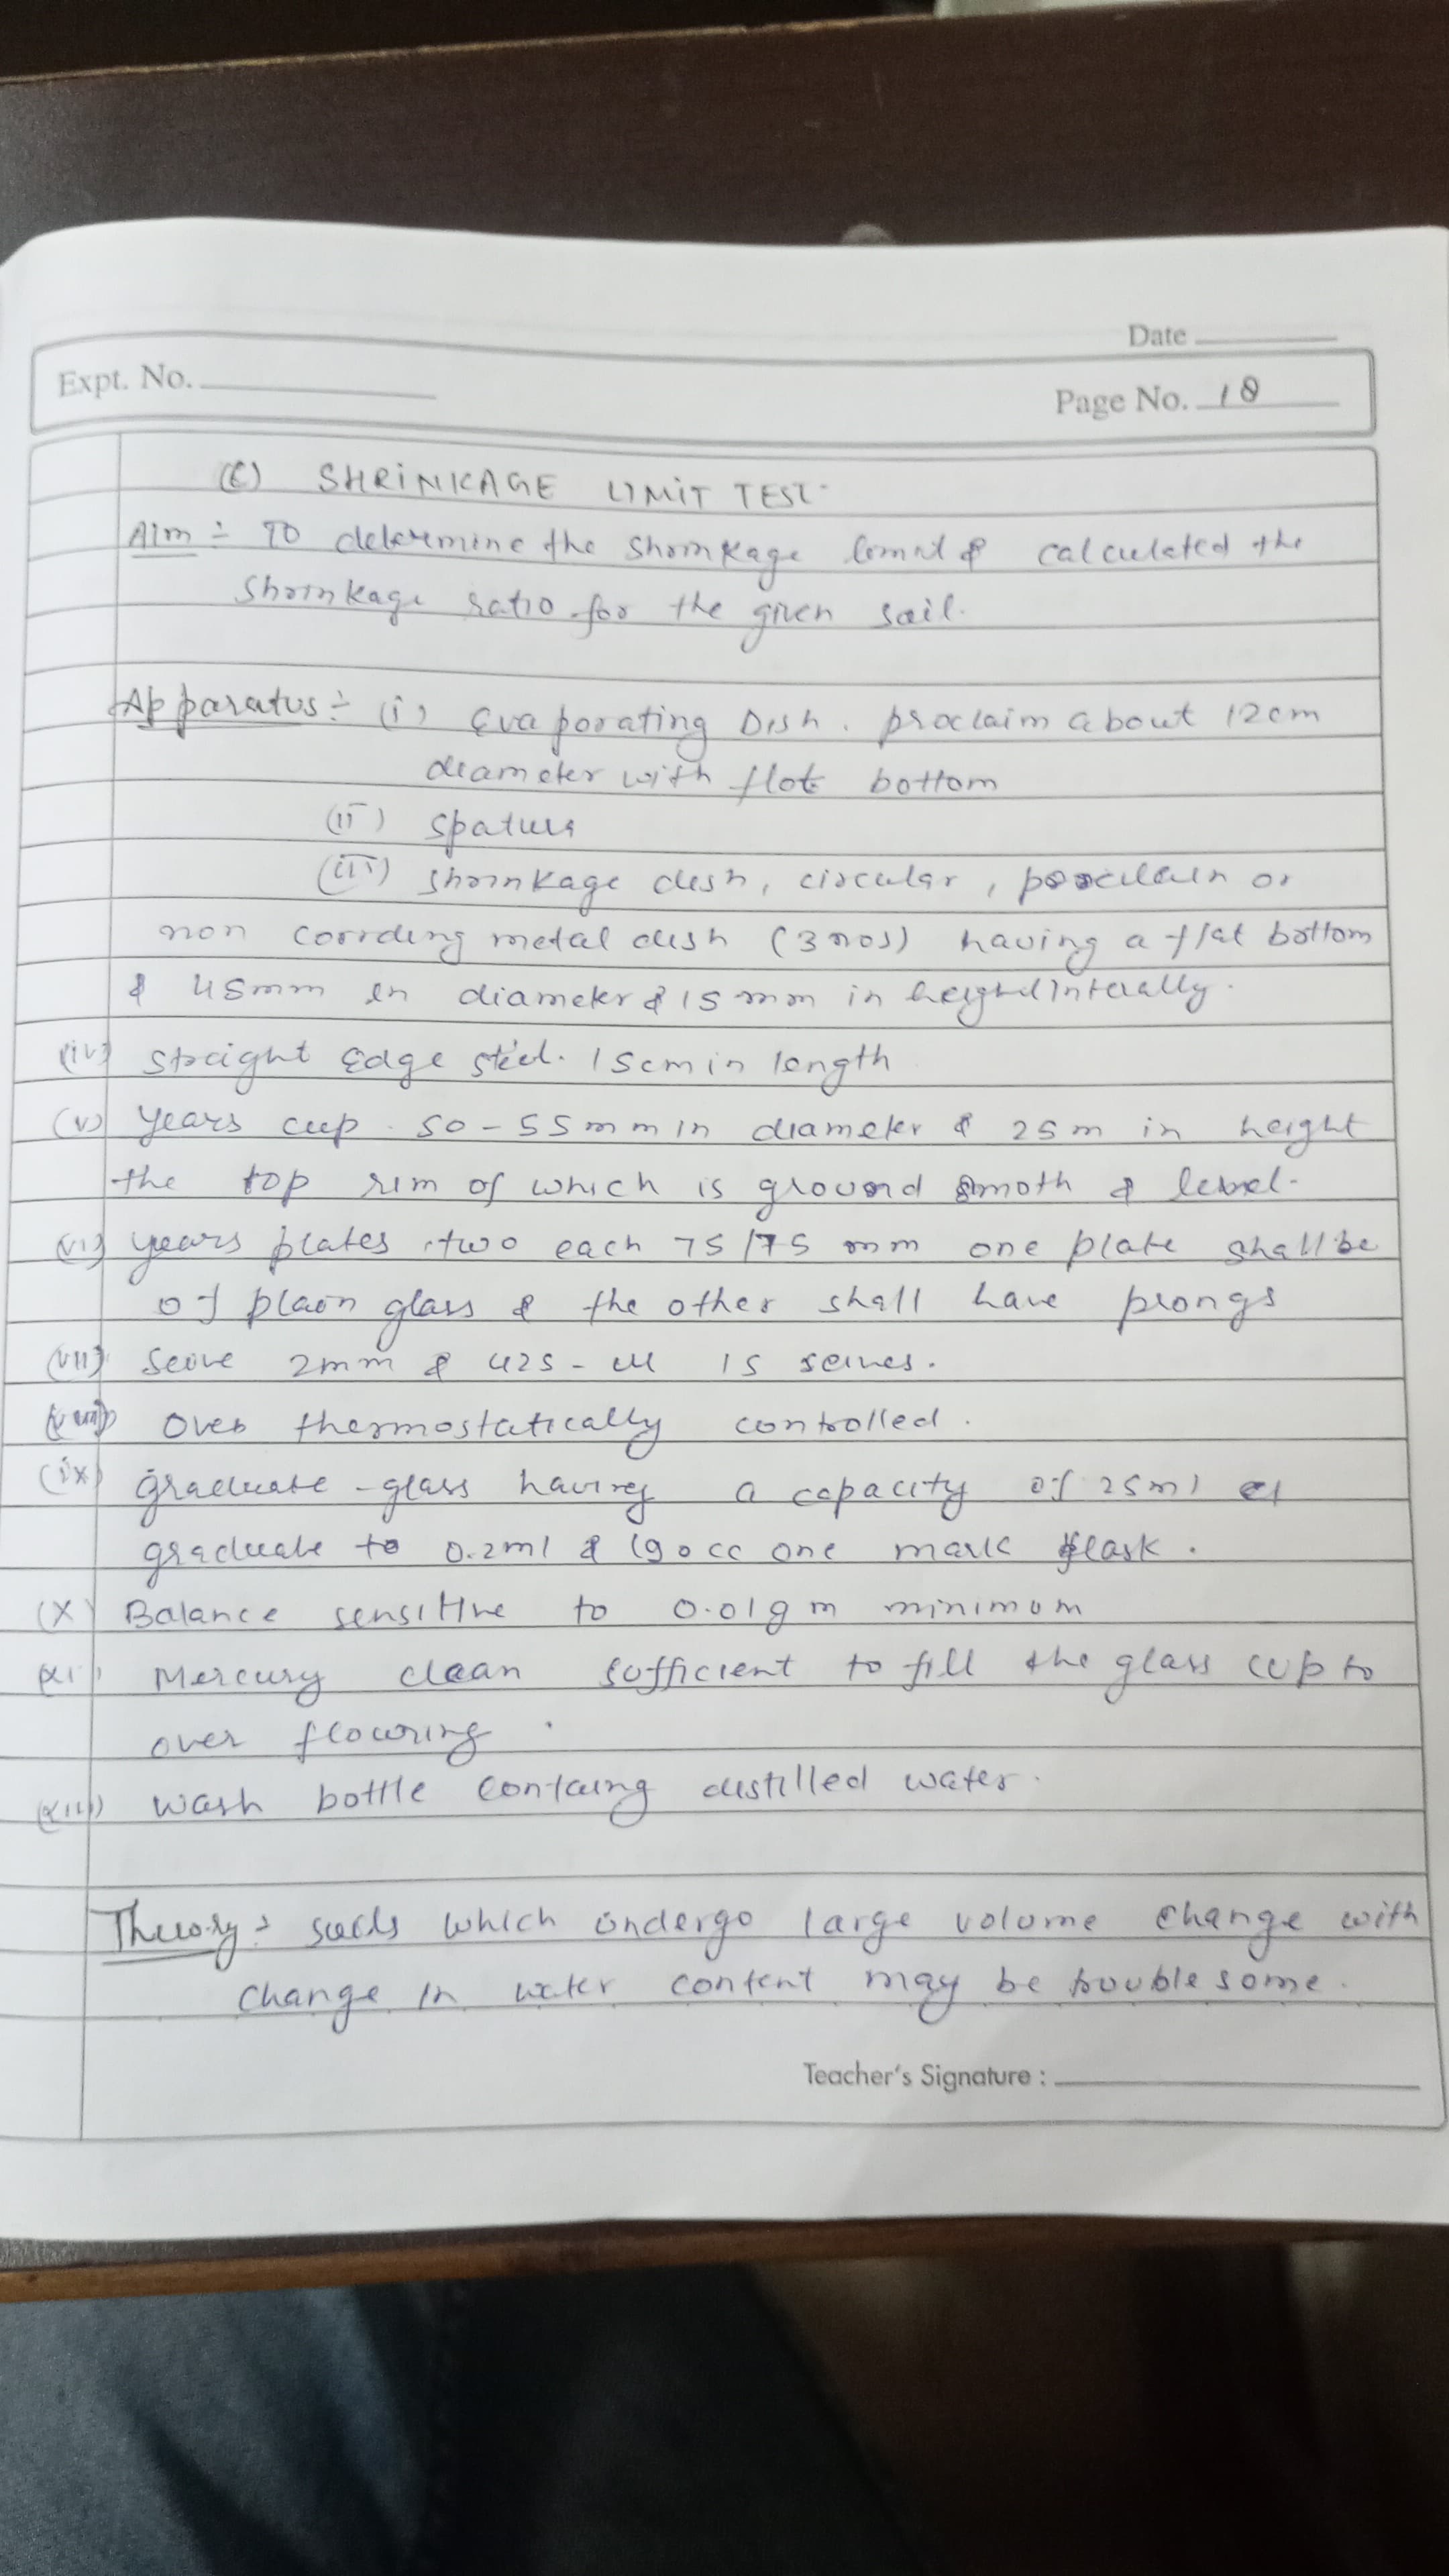 Date
Expt. No.
Page No. 18
(C) SHRINKAGE LIMIT TEST.
Aim ÷ TO determine the shrinkage limit & calculated the
shrinkage ratio for the given soil.
Apparatus ÷ (i) Evaporating Dish. proclaim about 12cm
diameter with flot bottom
(ii)
(iii) shrinkage dish, circular, porcelain or
non metal dish (3 nos) having a flat bottom
& 45mm in diameter & 15 mm in height
(iv) straight Edge steel. 15cm in length
(v) years cup 50-55mm in diameter & 25m in height
the top rim of which is ground smoth & level.
(vi) years plates, two each 75/75 mm one plate shall be
of plain glass & the other shall have prongs
(vii) Seive 2mm & 425-M IS seives.
(viii) Oven thermostatically controlled.
(ix) graduate-glass having a capacity of 25ml
graduate to 0.2ml & cc one mark flask.
(X) Balance sensitive to 0.01gm minimum
(xi) Mercury clean sufficient to fill the glass cup to
over flowring.
wash bottle containg distilled water.
Theory ÷ soils which undergo large volume change with
change in water content may be troublesome.
Teacher's Signature :